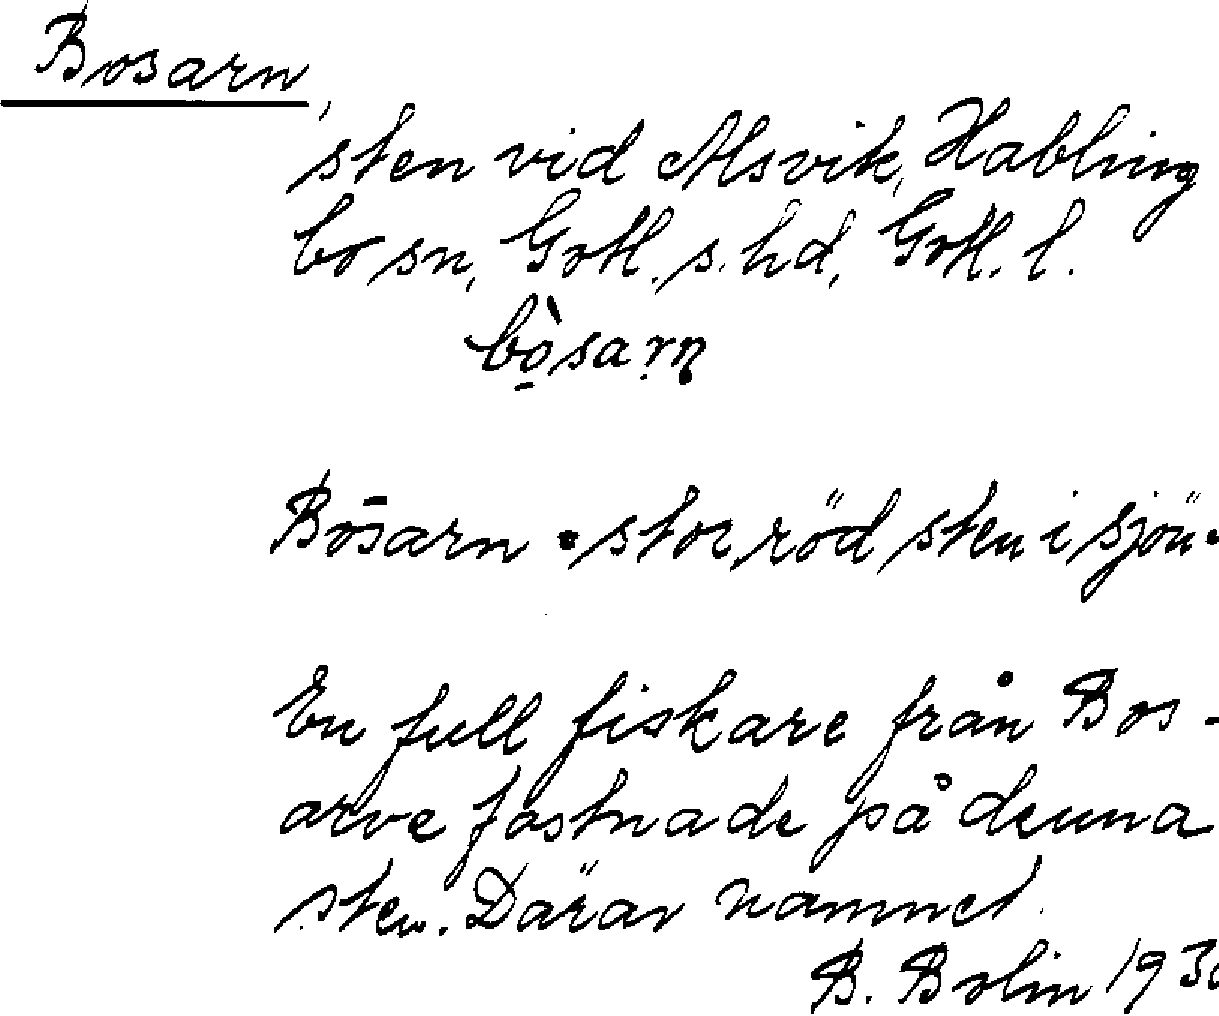 Bosarn,
sten vid Alsvik, Habling
bo sn, Gotl. s. hd, Gotl. l.
bò̱sarn
Bosarn = stor, röd sten i sjön.
En full fiskare från Bos-
arve fastnade på denna
sten. Därav namnet.
B. Bolin 193